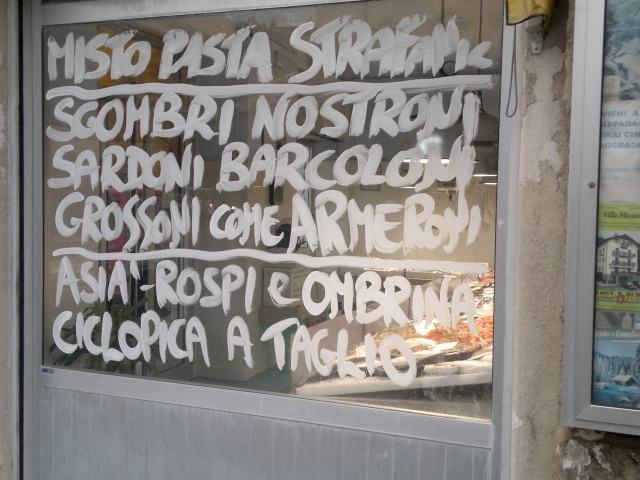 MISTO PASTA STRAFANIC
SGOMBRI NOSTRONI
SARDONI BARCOLONI
GROSSONI COME ARMERONI
ASIA'-ROSPI e OMBRINA
CICLOPICA A TAGLIO
VIENI A